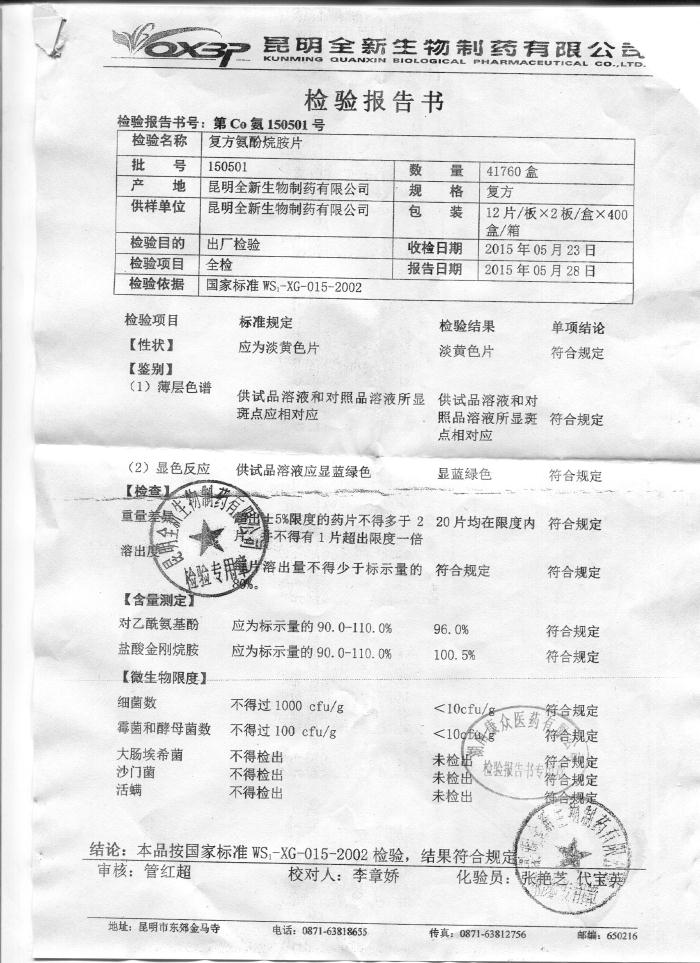 QX3P 昆明全新生物制药有限公司
KUNMING QUANXIN BIOLOGICAL PHARMACEUTICAL CO.,LTD.
检验报告书
检验报告书号：第 Co 氨 150501 号
检验名称 复方氨酚烷胺片
批 号 150501 数 量 41760 盒
产 地 昆明全新生物制药有限公司 规 格 复方
供样单位 昆明全新生物制药有限公司 包 装 12 片/板×2 板/盒×400
盒/箱
检验目的 出厂检验 收检日期 2015 年 05 月 23 日
检验项目 全检 报告日期 2015 年 05 月 28 日
检验依据 国家标准 WS₁-XG-015-2002
检验项目 标准规定 检验结果 单项结论
【性状】 应为淡黄色片 淡黄色片 符合规定
【鉴别】
（1）薄层色谱
供试品溶液和对照品溶液所显 供试品溶液和对
斑点应相对应 照品溶液所显斑 符合规定
点相对应
（2）显色反应 供试品溶液应显蓝绿色 显蓝绿色 符合规定
【检查】
重量差异 出±5%限度的药片不得多于 2 20 片均在限度内 符合规定
片 不得有 1 片超出限度一倍
溶出度
片溶出量不得少于标示量的 符合规定 符合规定
80%。
【含量测定】
对乙酰氨基酚 应为标示量的 90.0-110.0% 96.0% 符合规定
盐酸金刚烷胺 应为标示量的 90.0-110.0% 100.5% 符合规定
【微生物限度】
细菌数 不得过 1000 cfu/g ＜10cfu/g 符合规定
霉菌和酵母菌数 不得过 100 cfu/g ＜10cfu/g 符合规定
大肠埃希菌 不得检出 未检出 符合规定
沙门菌 不得检出 未检出 符合规定
活螨 不得检出 未检出 符合规定
昆明全新生物制药有限公司
检验专用章
康众医药有限公司
检验报告书专用
结论：本品按国家标准 WS₁-XG-015-2002 检验，结果符合规定
审核：管红超 校对人：李章娇 化验员：张艳芝 代宝英
地址：昆明市东郊金马寺 电话：0871-63818655 传真：0871-63812756 邮编：650216